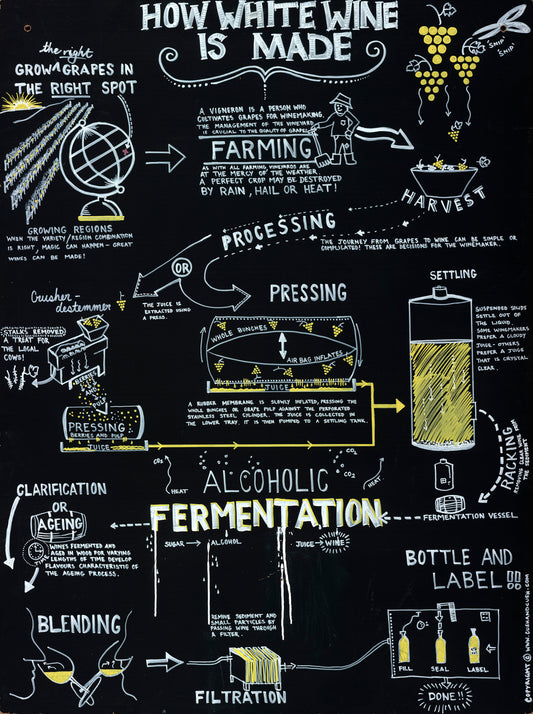 HOW WHITE WINE
IS MADE
the right
GROW GRAPES IN
THE RIGHT SPOT
SNIP
SNIP
A VIGNERON IS A PERSON WHO
CULTIVATES GRAPES FOR WINEMAKING.
THE MANAGEMENT OF THE VINEYARD
IS CRUCIAL TO THE QUALITY OF GRAPES
FARMING
AS WITH ALL FARMING VINEYARDS ARE
AT THE MERCY OF THE WEATHER.
A PERFECT CROP MAY BE DESTROYED
BY RAIN, HAIL OR HEAT!
HARVEST
GROWING REGIONS
WHEN THE VARIETY/REGION COMBINATION
IS RIGHT, MAGIC CAN HAPPEN - GREAT
WINES CAN BE MADE!
PROCESSING
THE JOURNEY FROM GRAPES TO WINE CAN BE SIMPLE OR
COMPLICATED! THESE ARE DECISIONS FOR THE WINEMAKER.
OR
Crusher-
destemmer
THE JUICE IS
EXTRACTED USING
A PRESS.
PRESSING
SETTLING
STALKS REMOVED
A TREAT FOR
THE LOCAL
COWS!
BERRIES
PRESSING
BERRIES AND PULP
JUICE
WHOLE BUNCHES
AIR BAG INFLATES
JUICE
A RUBBER MEMBRANE IS SLOWLY INFLATED, PRESSING THE
WHOLE BUNCHES OR GRAPE PULP AGAINST THE PERFORATED
STAINLESS STEEL CYLINDER. THE JUICE IS COLLECTED IN
THE LOWER TRAY. IT IS THEN PUMPED TO A SETTLING TANK.
SUSPENDED SOLIDS
SETTLE OUT OF
THE LIQUID.
SOME WINEMAKERS
PREFER A CLOUDY
JUICE - OTHERS
PREFER A JUICE
THAT IS CRYSTAL
CLEAR.
RACKING
REMOVING CLEAR WINE
THE SEDIMENT
FERMENTATION VESSEL
CO2
HEAT
CO2
CO2
HEAT
ALCOHOLIC
FERMENTATION
SUGAR → ALCOHOL
JUICE → WINE
CLARIFICATION
OR
AGEING
TIME
WINES FERMENTED AND
AGED IN WOOD FOR VARYING
LENGTHS OF TIME DEVELOP
FLAVOURS CHARACTERISTIC OF
THE AGEING PROCESS.
BLENDING
REMOVE SEDIMENT AND
SMALL PARTICLES BY
PASSING WINE THROUGH
A FILTER.
FILTRATION
BOTTLE AND
LABEL!!
FILL
SEAL
LABEL
DONE!!
COPYRIGHT © WWW.CUSHANDCUSH.COM